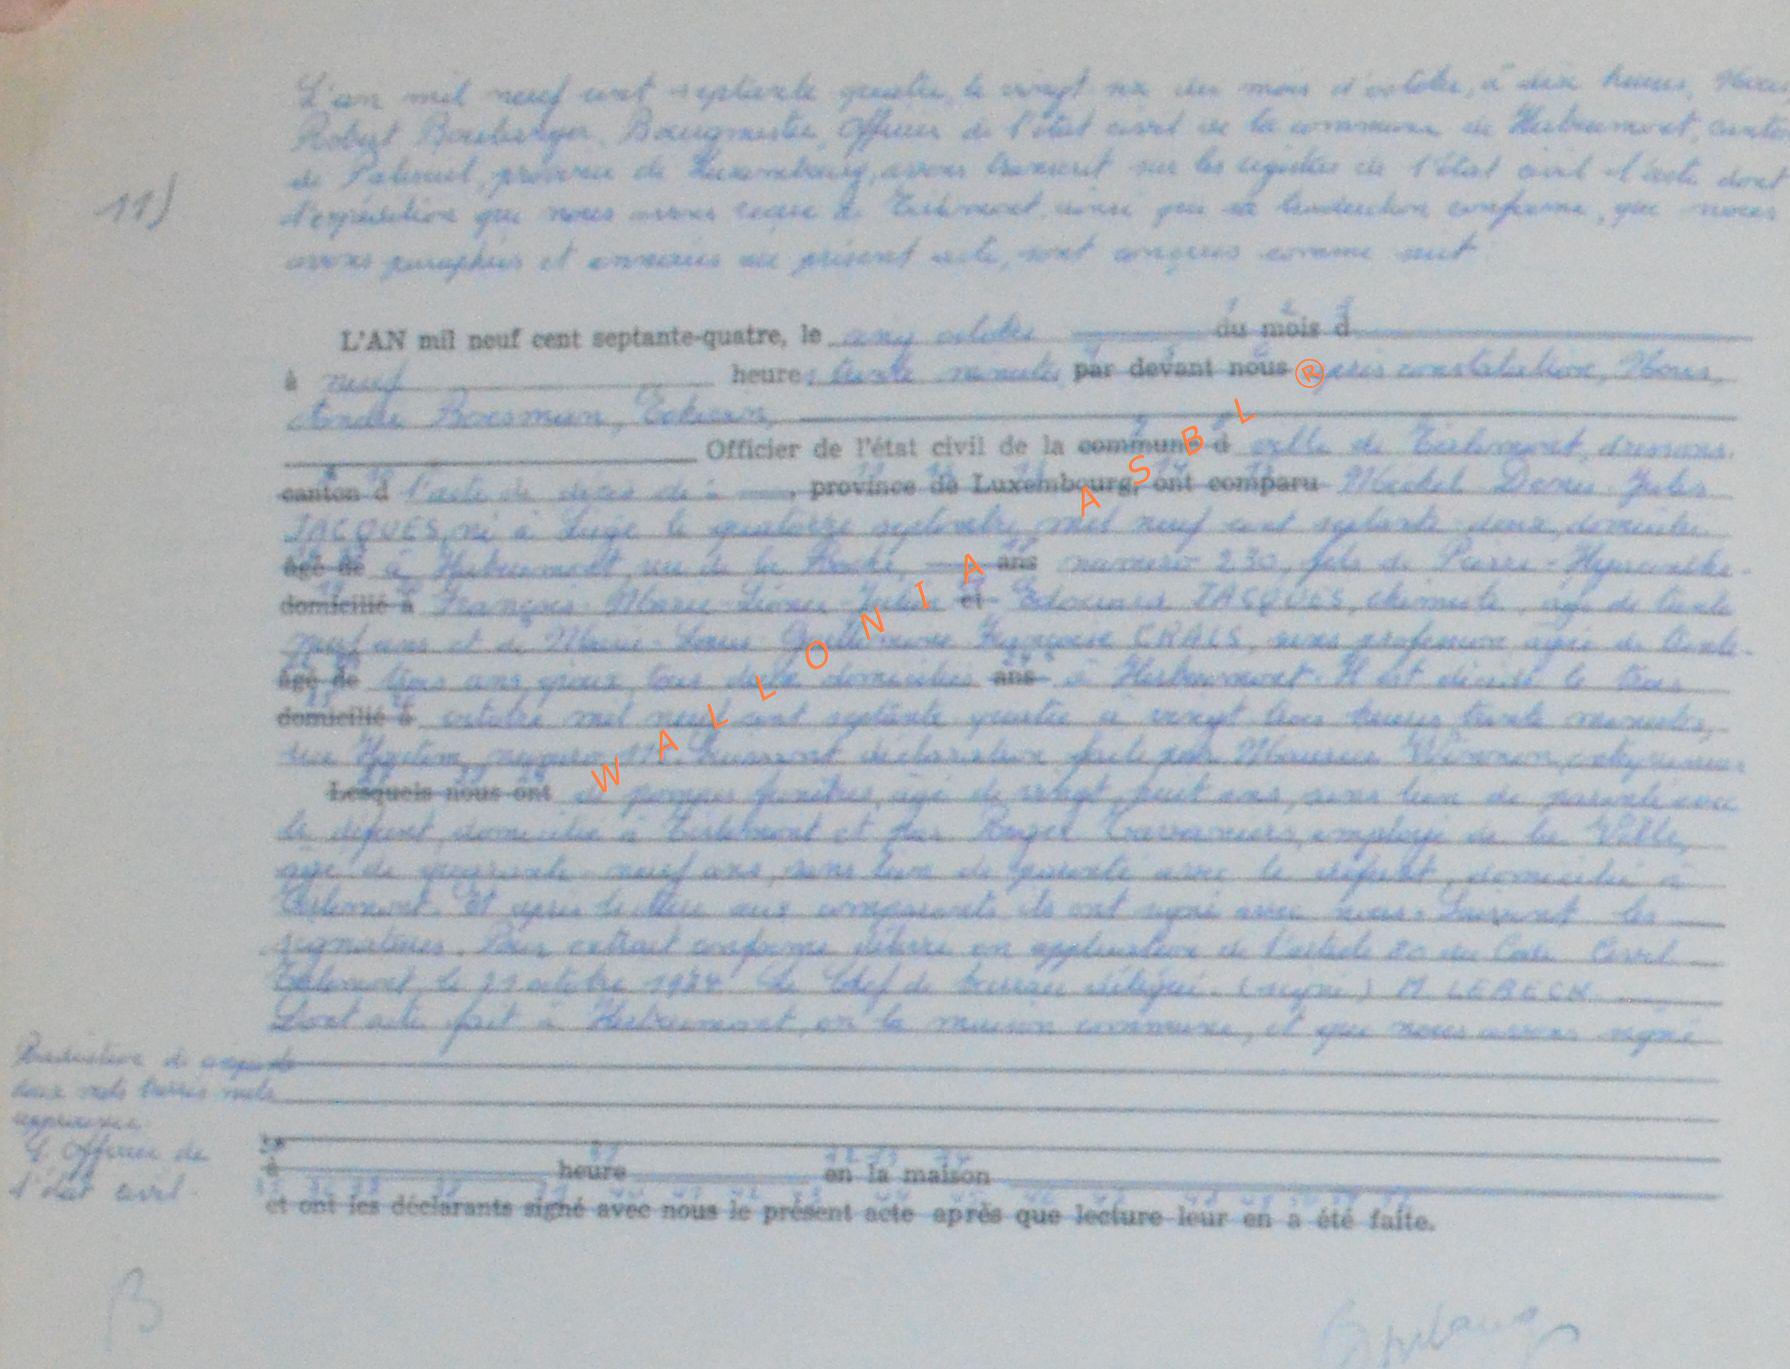 L'an mil neuf cent septante quatre, le vingt six du mois d'octobre, à dix heures, Nous
Robert Boulanger, Bourgmestre, Officier de l'état civil de la commune de Herbeumont, canton
de Paliseul, province de Luxembourg, avons transcrit sur les registres de l'état civil l'acte dont
l'expédition que nous avons reçue de Tirlemont, ainsi que sa traduction conforme, que nous
avons paraphées et annexées au présent acte, sont conçues comme suit
11)
L'AN mil neuf cent septante-quatre, le cinq octobre du mois d
à neuf heures trente minutes par devant nous après constatation, Nous,
André Boesman, Echevin,
Officier de l'état civil de la commune d ville de Tirlemont, dressons
canton d l'acte de décès de : province de Luxembourg, ont comparu Michel Denis Jules
JACQUES, né à Liège le quatorze septembre mil neuf cent septante deux, domicilié
âgé de à Herbeumont, rue de la Roche, ans numéro 230, fils de Pierre-Hyacinthe-
domicilié à François-Marie-Lionel-Julien et Edouard JACQUES, chimiste, âgé de trente
neuf ans et de Marie-Louise Françoise, sans profession âgée de trente
âgé de trois ans, époux, tous deux domiciliés ans à Herbeumont. Il est décédé le trois
domicilié à octobre mil neuf cent septante quatre à vingt trois heures trente minutes,
rue numéro 11. Suivant déclaration faite par Maurice entrepreneur
Lesquels nous ont de pompes funèbres, âgé de vingt huit ans, sans lien de parenté avec
le défunt, domicilié à Tirlemont et par Roger employé de la Ville,
âgé de quarante neuf ans, sans lien de parenté avec le défunt, domicilié à
Tirlemont. Et après lecture aux comparants ils ont signé avec nous. Suivent les
signatures. Pour extrait conforme délivré en application de l'article 80 du Code Civil
Tirlemont, le 21 octobre 1974 Le Chef de bureau délégué. (signé) M LEBECK
Dont acte fait à Herbeumont, en la maison communale, et que nous avons signé
deux mots barrés nuls
approuvée.
L'Officier de
l'état civil.
à heure en la maison
et ont les déclarants signé avec nous le présent acte après que lecture leur en a été faite.
B
WALLONIA ASBL ®